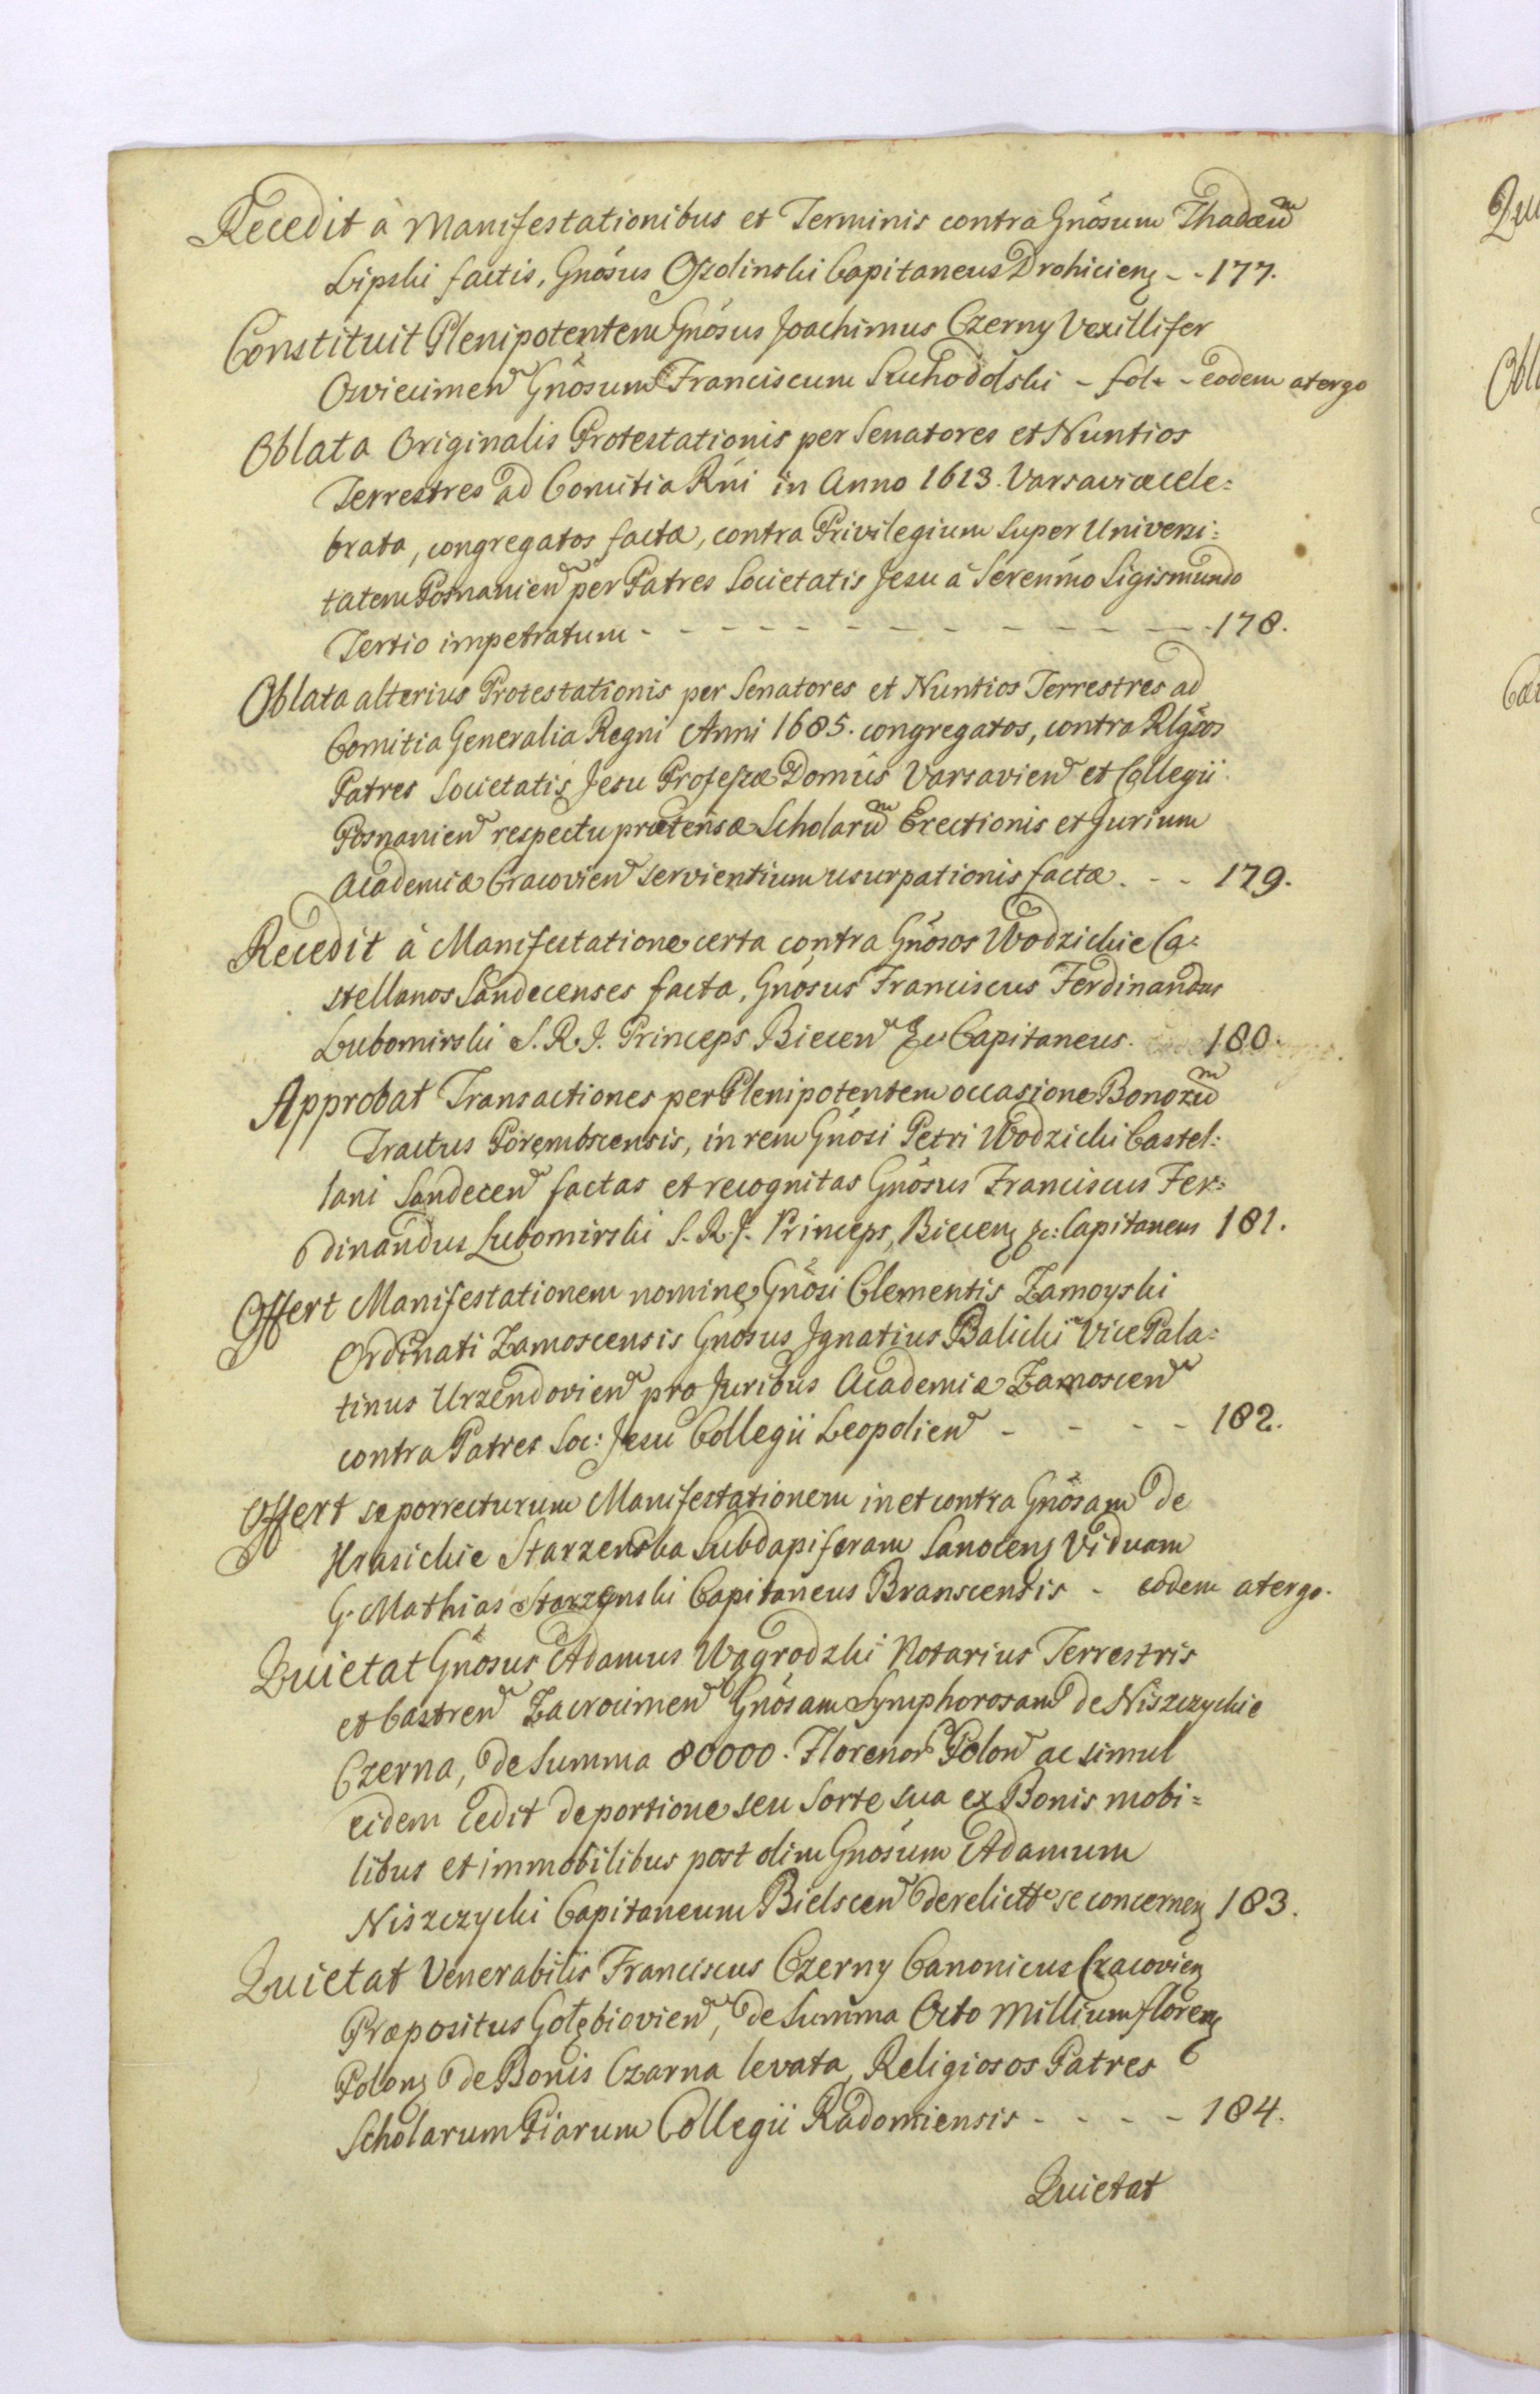 Recedit à Manifestationibus et Terminis contra Gnösum Thadæū
Lipski factis, Gnösus Oſsolinski Capitaneus Drohicien̄ - - 177.
Constituit Plenipotentem Gnösus Joachimus Czerny Vexillifer
Oswiecimen̄ Gnösum Franciscum Suchodolski - fol. - eodem atergo
Oblata Originalis Protestationis per Senatores et Nuntios
Terrestres ad Comitia Rñi in Anno 1613. Varsaviæ cele=
brata, congregatos factæ, contra Privilegium super Universi=
tatem Posnanien̄ per Patres Societatis Jesu à Serenm̃o Sigismundo
Tertio impetratum - - - - - - - - - - - - - 178.
Oblata alterius Protestationis per Senatores et Nuntios Terrestres ad
Comitia Generalia Regni Anni 1685. congregatos, contra Rlgs̃os
Patres Societatis Jesu Profeſsæ Domûs Varsavien̄ et Collegii
Posnanien̄ respectu prætensæ Scholarū Erectionis et Jurium
Academiæ Cracovien̄ servientium usurpationis factæ. - - 179.
Recedit à Manifestatione certa contra Gnösos Wodzickie Ca=
stellanos Sandecenses facta, Gnösus Franciscus Ferdinandus
Lubomirski S. R. J. Princeps Biecen̄ &c Capitaneus. 180.
Approbat Transactiones per Plenipotentem occasione Bonorū
Tractus Porembscensis, in rem Gnösi Petri Wodzicki Castel=
lani Sandecen̄ factas et recognitas Gnösus Franciscus Fer=
dinandus Lubomirski S. R. J. Princeps, Biecen̄ &c: Capitaneus 181.
Offert Manifestationem nomine Gnösi Clementis Zamoyski
Ordinati Zamoscensis Gnosus Jgnatius Balicki Vice Pala=
tinus Urzendovien̄ pro Juribus Academiæ Zamoscen̄
contra Patres Soc: Jesu Collegii Leopolien̄ - - - - 182.
Offert se porrecturum Manifestationem in et contra Gnösam de
Krasickie Starzenska Subdapiferam Sanocen̄ Viduam
G. Mathias Starzenski Capitaneus Branscensis - eodem atergo.
Quietat Gnösus Adamus Wągrodzki Notarius Terrestris
et Castren̄ Zacrocimen̄ Gnösam Symphorosam de Niszczyckie
Czerna, de Summa 80000. Florenor Polon̄ ac simul
eidem Cedit de portione seu Sorte sua ex Bonis mobi=
libus et immobilibus post olim Gnösum Adamum
Niszczycki Capitaneum Bielscen̄ derelictis se concernen̄ 183.
Quietat Venerabilis Franciscus Czerny Canonicus Cracovien̄
Præpositus Gołębiovien̄, de Summa Octo Millium floren̄
Polon̄ de Bonis Czarna levata, Religiosos Patres
Scholarum Piarum Collegii Radomiensis - - - - 184.
Quietat